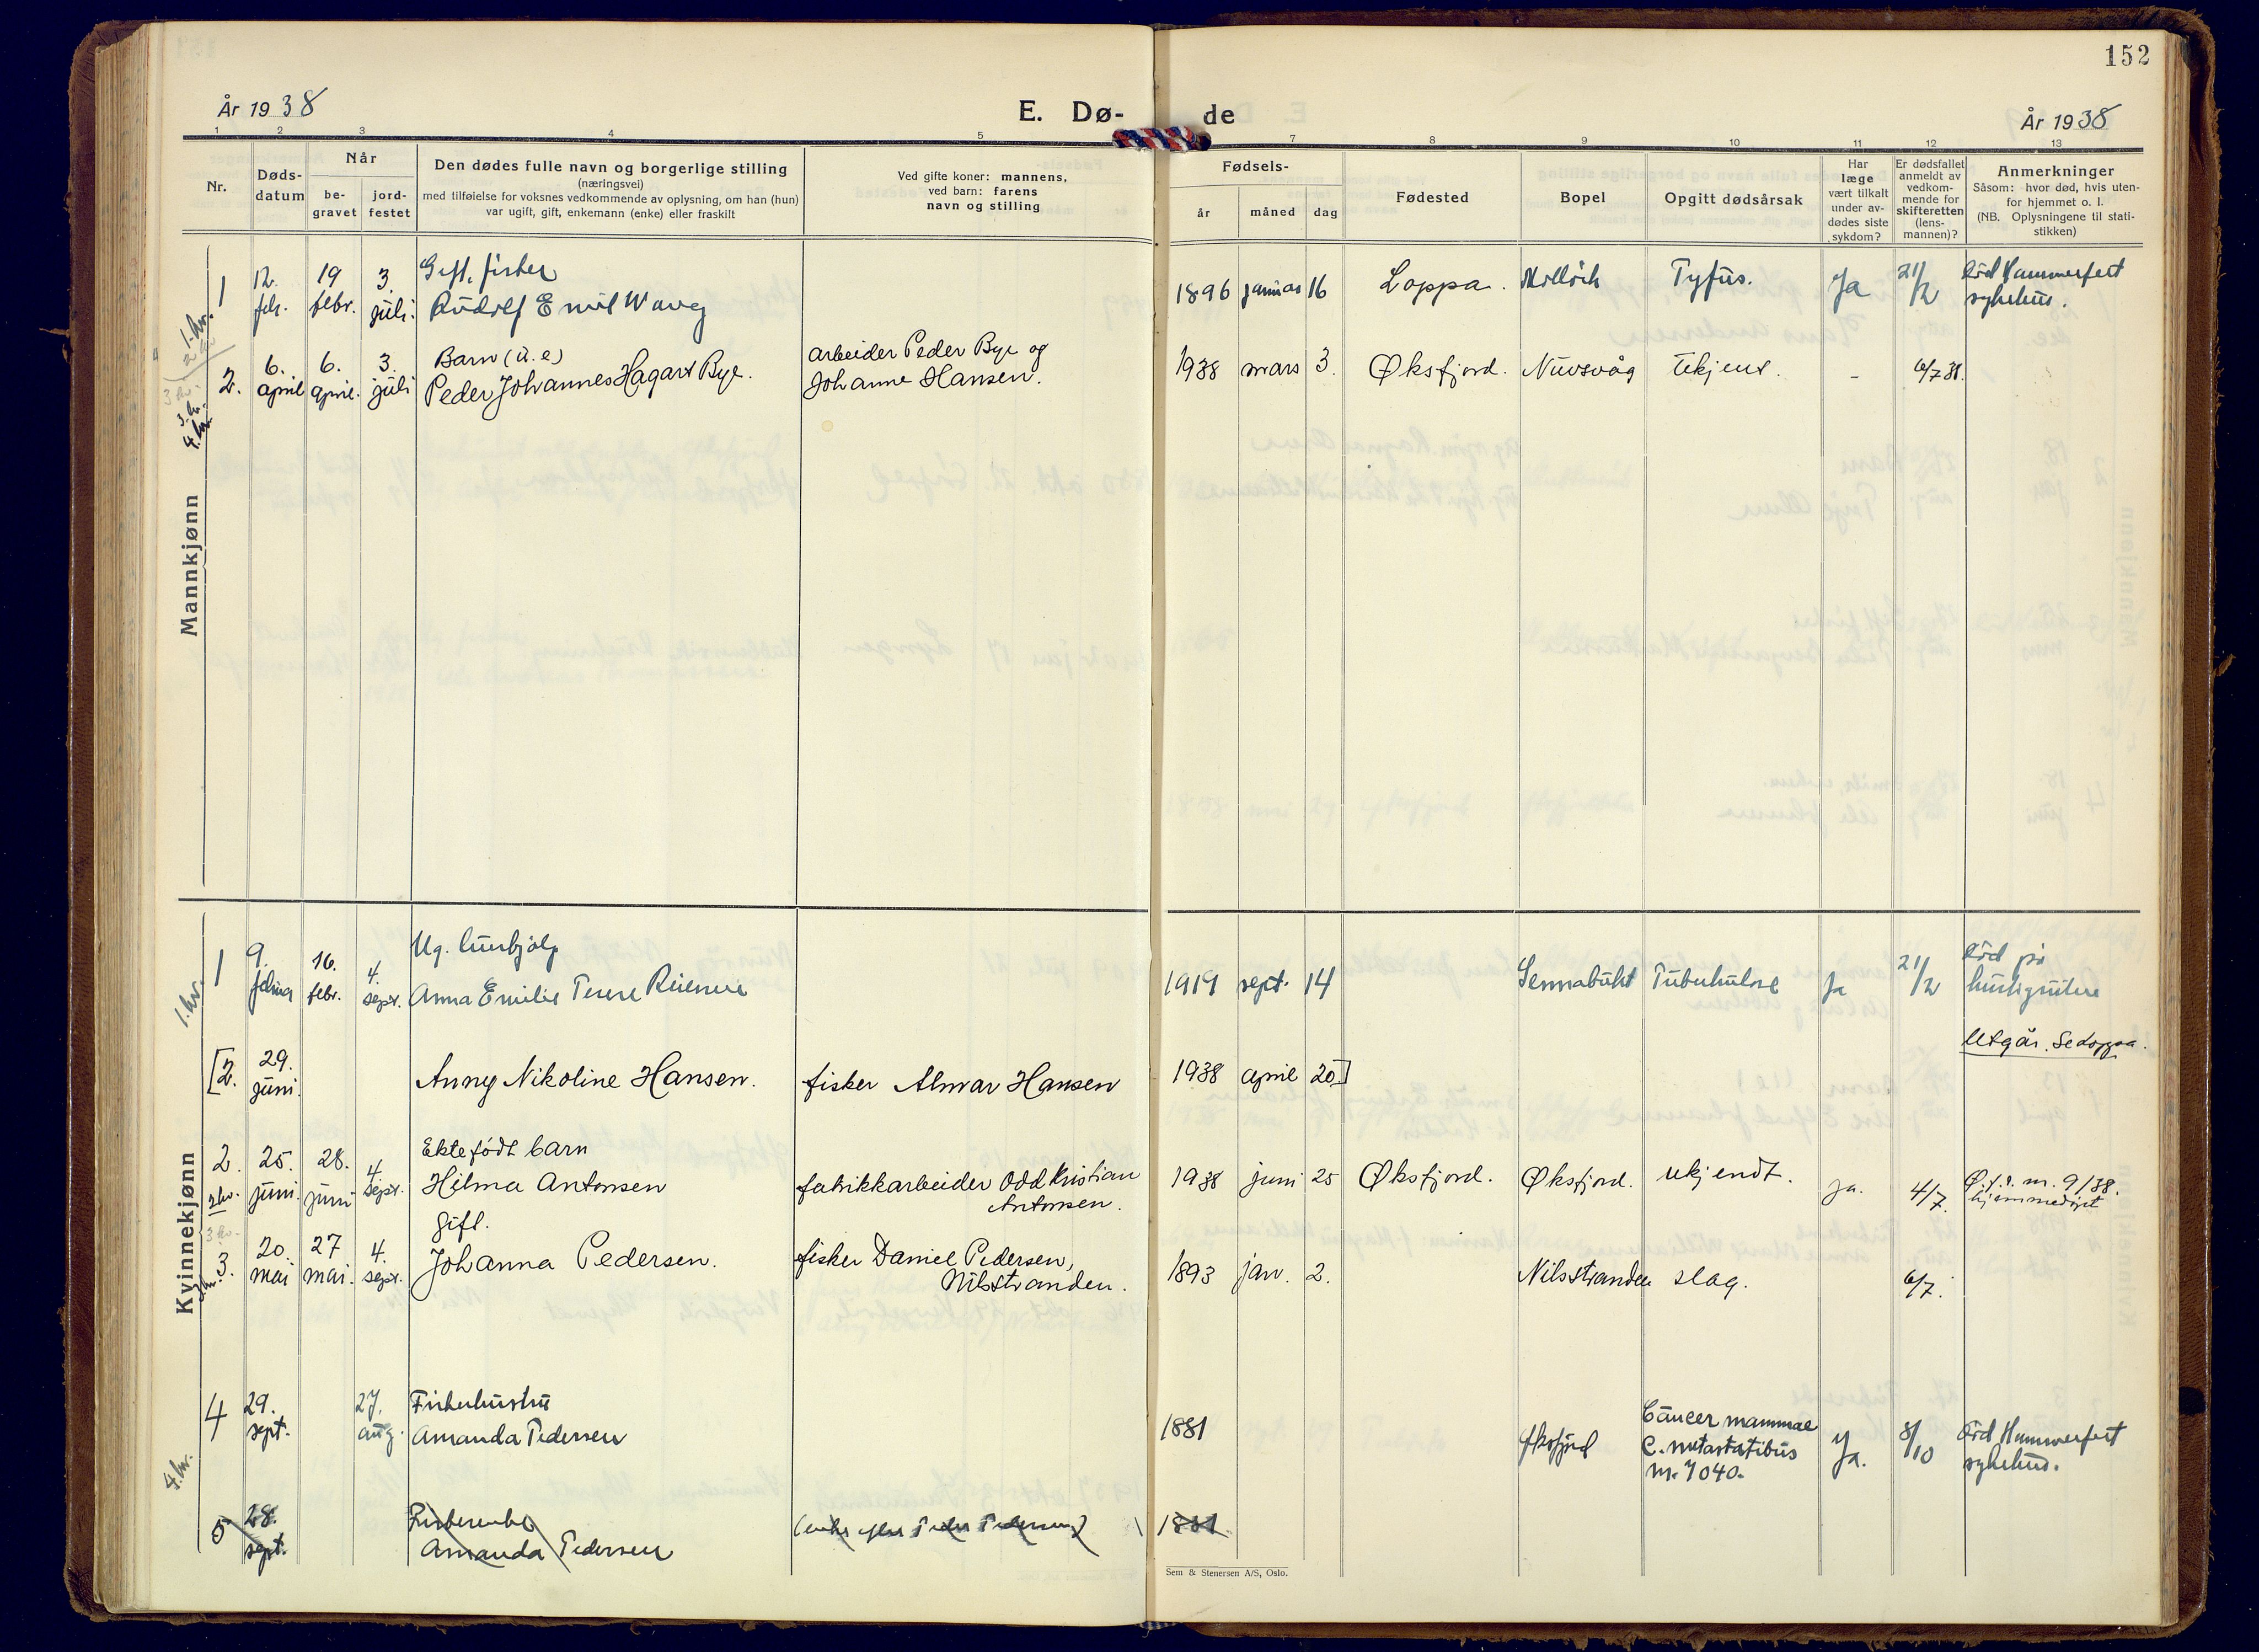 152
År 1938
E. Dø-
de
År 1938
1 2 3 4 5 7 8 9 10 11 12 13
Nr.
Døds-
datum
Når
be-
gravet
jord-
festet
Den dødes fulle navn og borgerlige stilling
(næringsvei)
med tilføielse for voksnes vedkommende av oplysning, om han (hun)
var ugift, gift, enkemann (enke) eller fraskilt
Ved gifte koner: mannens,
ved barn: farens
navn og stilling
Fødsels-
år
måned
dag
Fødested
Bopel
Opgitt dødsårsak
Har
læge
vært tilkalt
under av-
dødes siste
sykdom?
Er dødsfallet
anmeldt av
vedkom-
mende for
skifteretten
(lens-
mannen)?
Anmerkninger
Såsom: hvor død, hvis uten-
for hjemmet o. l.
(NB. Oplysningene til stati-
stikken)
Mannkjønn
1 12. febr. 19 febr. 3. juli.
Gift, fisker
Rudolf Emil Waag
1896 januar 16 Loppa. Tyfus. Ja 21/2
Død Hammerfest
sykehus.
1. kv.
2. 6. april 6. april. 3. juli
Barn (u. e)
Peder Johannes Hagart Bye.
arbeider Peder Bye og
Johanne Hansen.
1938 mars 3. Øksfjord. Nuvsvåg Ukjent. - 6/7 38.
3. kv.
4. kv.
Kvinnekjønn
1 9. februar 16. febr. 4. sept.
Ug. hushjelp
Anna Emilie Terese
1919 sept. 14 Sennabukt Tuberkulose Ja 21/2
Død på
hurtigruten
1. kv.
[2. 29. juni.
Anny Nikoline Hansen.
fisker Almar Hansen
1938 april 20]
Utgår. Se Loppa.
2. 25. juni. 28. juni 4. sept.
Ektefødt barn
Hilma Antonsen
fabrikkarbeider Odd Kristian
Antonsen.
1938 juni 25 Øksfjord. Øksfjord. ukjendt. ja. 4/7.
Ø. f. r. nr. 9/38.
hjemmedøpt
2 kv.
3 kv.
3. 20. mai 27 mai. 4. sept.
Gift.
Johanna Pedersen.
fisker Daniel Pedersen,
Nilsstranden.
1893 jan. 2. Nilsstranden slag. 6/7.
4 29. sept. 27. aug.
Fiskerhustru
Amanda Pedersen
1881 Øksfjord
Cancer mammae
c. metastatibus
nr. 4040.
Ja. 8/10
Død Hammerfest
sykehus.
4. kv.
5 28. sept.
Fiskerenke
Amanda Pedersen
(enke efter Peder Pedersen)
1881
Sem & Stenersen A/S, Oslo.